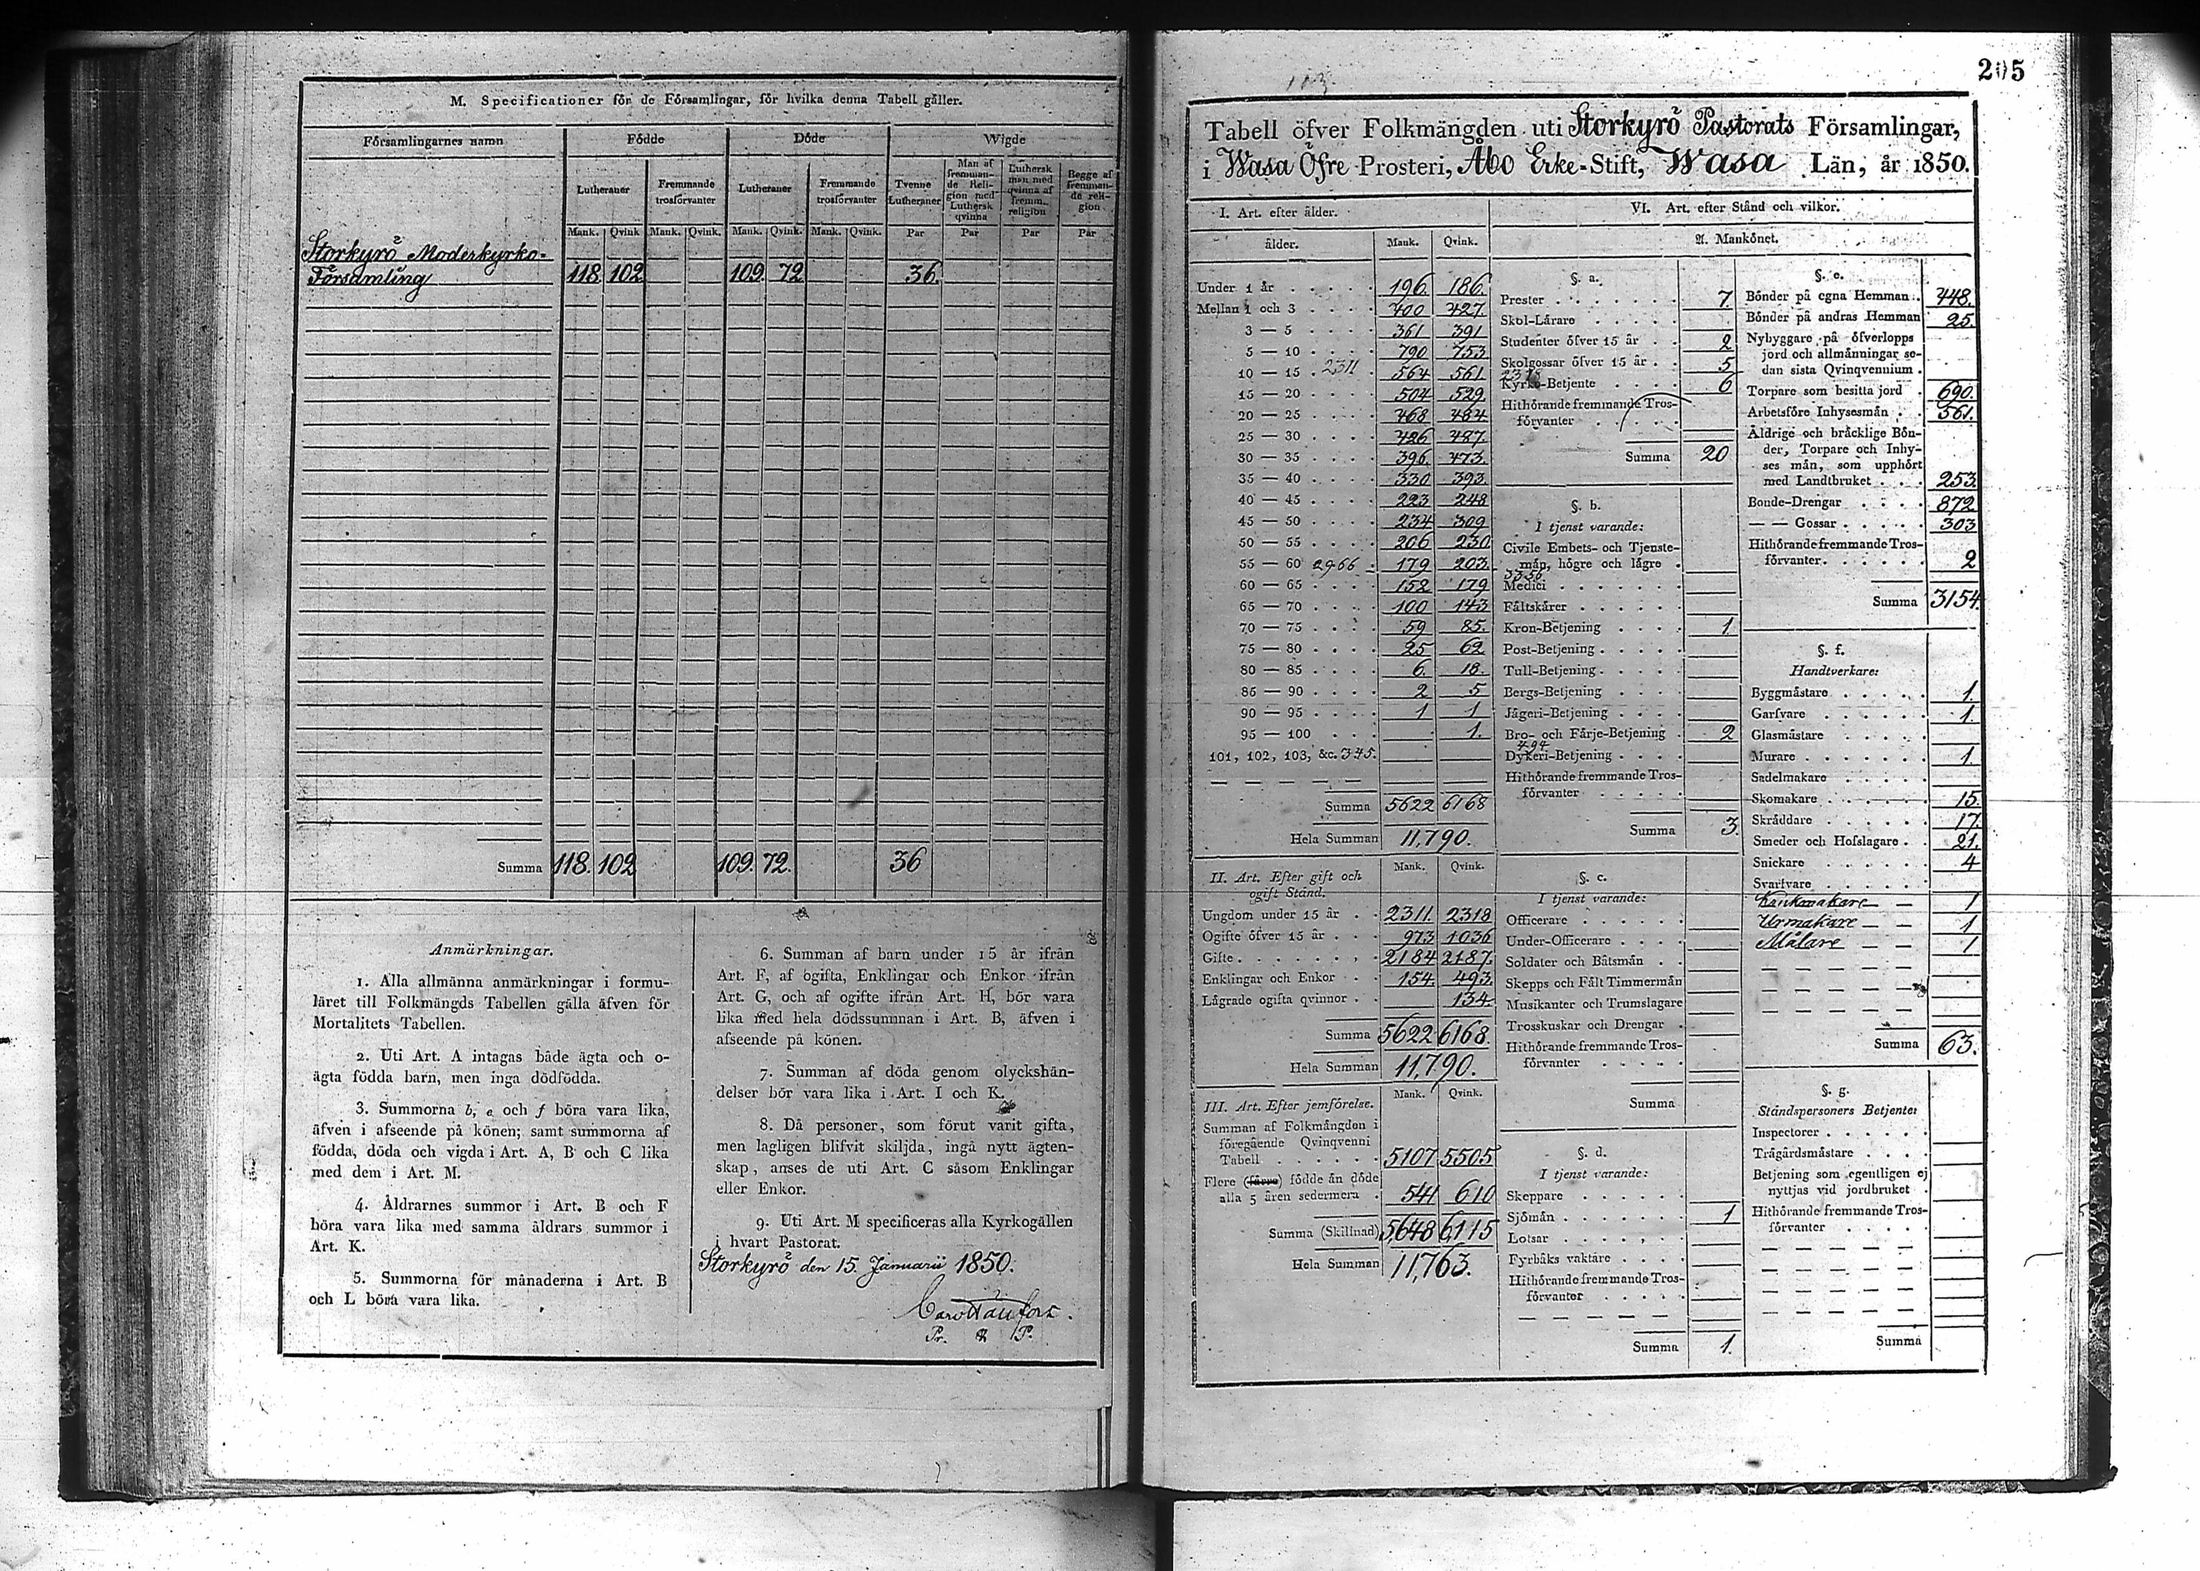 M. Specificationer för de Församlingar, för hvilka denna Tabell gäller.
Församlingarnes namn Födde Döde Wigde
Lutheraner Fremmande trosförvanter Lutheraner Fremmande trosförvanter Tvenne Lutheraner Man af fremmande Religion med Luthersk qvinna Luthersk man med qvinna af fremm. religion Begge af fremmande religion
Mank. Qvink Mank. Qvink. Mank. Qvink. Mank. Qvink. Par Par Par Par
Storkyrö Moderkyrko-
Församling 118 102 109. 72 36.
Summa 118. 102 109. 72. 36
Anmärkningar.
1. Alla allmänna anmärkningar i formu-
läret till Folkmängds Tabellen gälla äfven för
Mortalitets Tabellen.
2. Uti Art. A intagas både ägta och o-
ägta födda barn, men inga dödfödda.
3. Summorna b, e och f böra vara lika,
äfven i afseende på könen; samt summorna af
födda, döda och vigda i Art. A, B och C lika
med dem i Art. M.
4. Åldrarnes summor i Art. B och F
böra vara lika med samma åldrars summor i
Art. K.
5. Summorna för månaderna i Art. B
och L böra vara lika.
6. Summan af barn under 15 år ifrån
Art. F, af ogifta, Enklingar och Enkor ifrån
Art. G, och af ogifte ifrån Art. H, bör vara
lika med hela dödssumman i Art. B, äfven i
afseende på könen.
7. Summan af döda genom olyckshän-
delser bör vara lika i Art. I och K.
8. Då personer, som förut varit gifta,
men lagligen blifvit skiljda, ingå nytt ägten-
skap, anses de uti Art. C såsom Enklingar
eller Enkor.
9. Uti Art. M specificeras alla Kyrkogällen
i hvart Pastorat.
Storkyrö den 15. Januarii 1850.
Pr. & P.
205
Tabell öfver Folkmängden uti Storkyrö Pastorats Församlingar,
i Wasa Öfre Prosteri, Åbo Erke-Stift, Wasa Län, år 1850.
I. Art. efter ålder.
ålder. Mank. Qvink.
Under 1 år 196. 186.
Mellan 1 och 3 400 427.
3 — 5 361 391
5 — 10 790 753
10 — 15 2311 564 561
15 — 20 504 529
20 — 25 468 484
25 — 30 426 487.
30 — 35 396. 473.
35 — 40 330 393.
40 — 45 223 248
45 — 50 234 309
50 — 55 206 230
55 — 60 2966 179 203.
60 — 65 152 179
65 — 70 100 143
70 — 75 59 85.
75 — 80 25 62
80 — 85 6. 18.
85 — 90 2 5
90 — 95 1 1
95 — 100 1.
101, 102, 103, &c. 345.
Summa 5622 6168
Hela Summan 11,790.
II. Art. Efter gift och ogift Stånd. Mank. Qvink.
Ungdom under 15 år 2311. 2318
Ogifte öfver 15 år 973 1036
Gifte 2184 2187.
Enklingar och Enkor 154. 493.
Lägrade ogifta qvinnor 134.
Summa 5622 6168.
Hela Summan 11,790.
III. Art. Efter jemförelse. Mank. Qvink.
Summan af Folkmängden i
föregående Qvinqvenni
Tabell 5107 5505
Flere (färre) födde än döde
alla 5 åren sedermera 541 610
Summa (Skillnad) 5,648 6,115
Hela Summan 11,763.
VI. Art. efter Stånd och vilkor.
A. Mankönet.
§. a.
Prester 7
Skol-Lärare
Studenter öfver 15 år 2
Skolgossar öfver 15 år 5
Kyrko-Betjente 6
Hithörande fremmande Tros-
förvanter
Summa 20
§. b.
I tjenst varande:
Civile Embets- och Tjenste-
män, högre och lägre
Medici
Fältskärer
Kron-Betjening 1
Post-Betjening
Tull-Betjening
Bergs-Betjening
Jägeri-Betjening
Bro- och Färje-Betjening 2
494
Dykeri-Betjening
Hithörande fremmande Tros-
förvanter
Summa 3.
§. c.
I tjenst varande:
Officerare
Under-Officerare
Soldater och Båtsmän
Skepps och Fält Timmermän
Musikanter och Trumslagare
Trosskuskar och Drengar
Hithörande fremmande Tros-
förvanter
Summa
§. d.
I tjenst varande:
Skeppare
Sjömän 1
Lotsar
Fyrbåks vaktare
Hithörande fremmande Tros-
förvanter
Summa 1.
§. e.
Bönder på egna Hemman 448.
Bönder på andras Hemman 25.
Nybyggare på öfverlopps
jord och allmänningar se-
dan sista Qvinqvennium
Torpare som besitta jord 690.
Arbetsföre Inhysesmän 561.
Åldrige och bräcklige Bön-
der, Torpare och Inhy-
ses män, som upphört
med Landtbruket 253
Bonde-Drengar 872
— — Gossar 303
Hithörande fremmande Tros-
förvanter 2
Summa 3154.
§. f.
Handtverkare:
Byggmästare 1.
Garfvare 1.
Glasmästare
Murare 1.
Sadelmakare
Skomakare 15.
Skräddare 17.
Smeder och Hofslagare 21.
Snickare 4
Svarfvare
1
Urmakare — — 1
Målare — — 1
Summa 63.
§. g.
Ståndspersoners Betjente:
Inspectorer
Trägårdsmästare
Betjening som egentligen ej
nyttjas vid jordbruket
Hithörande fremmande Tros-
förvanter
Summa